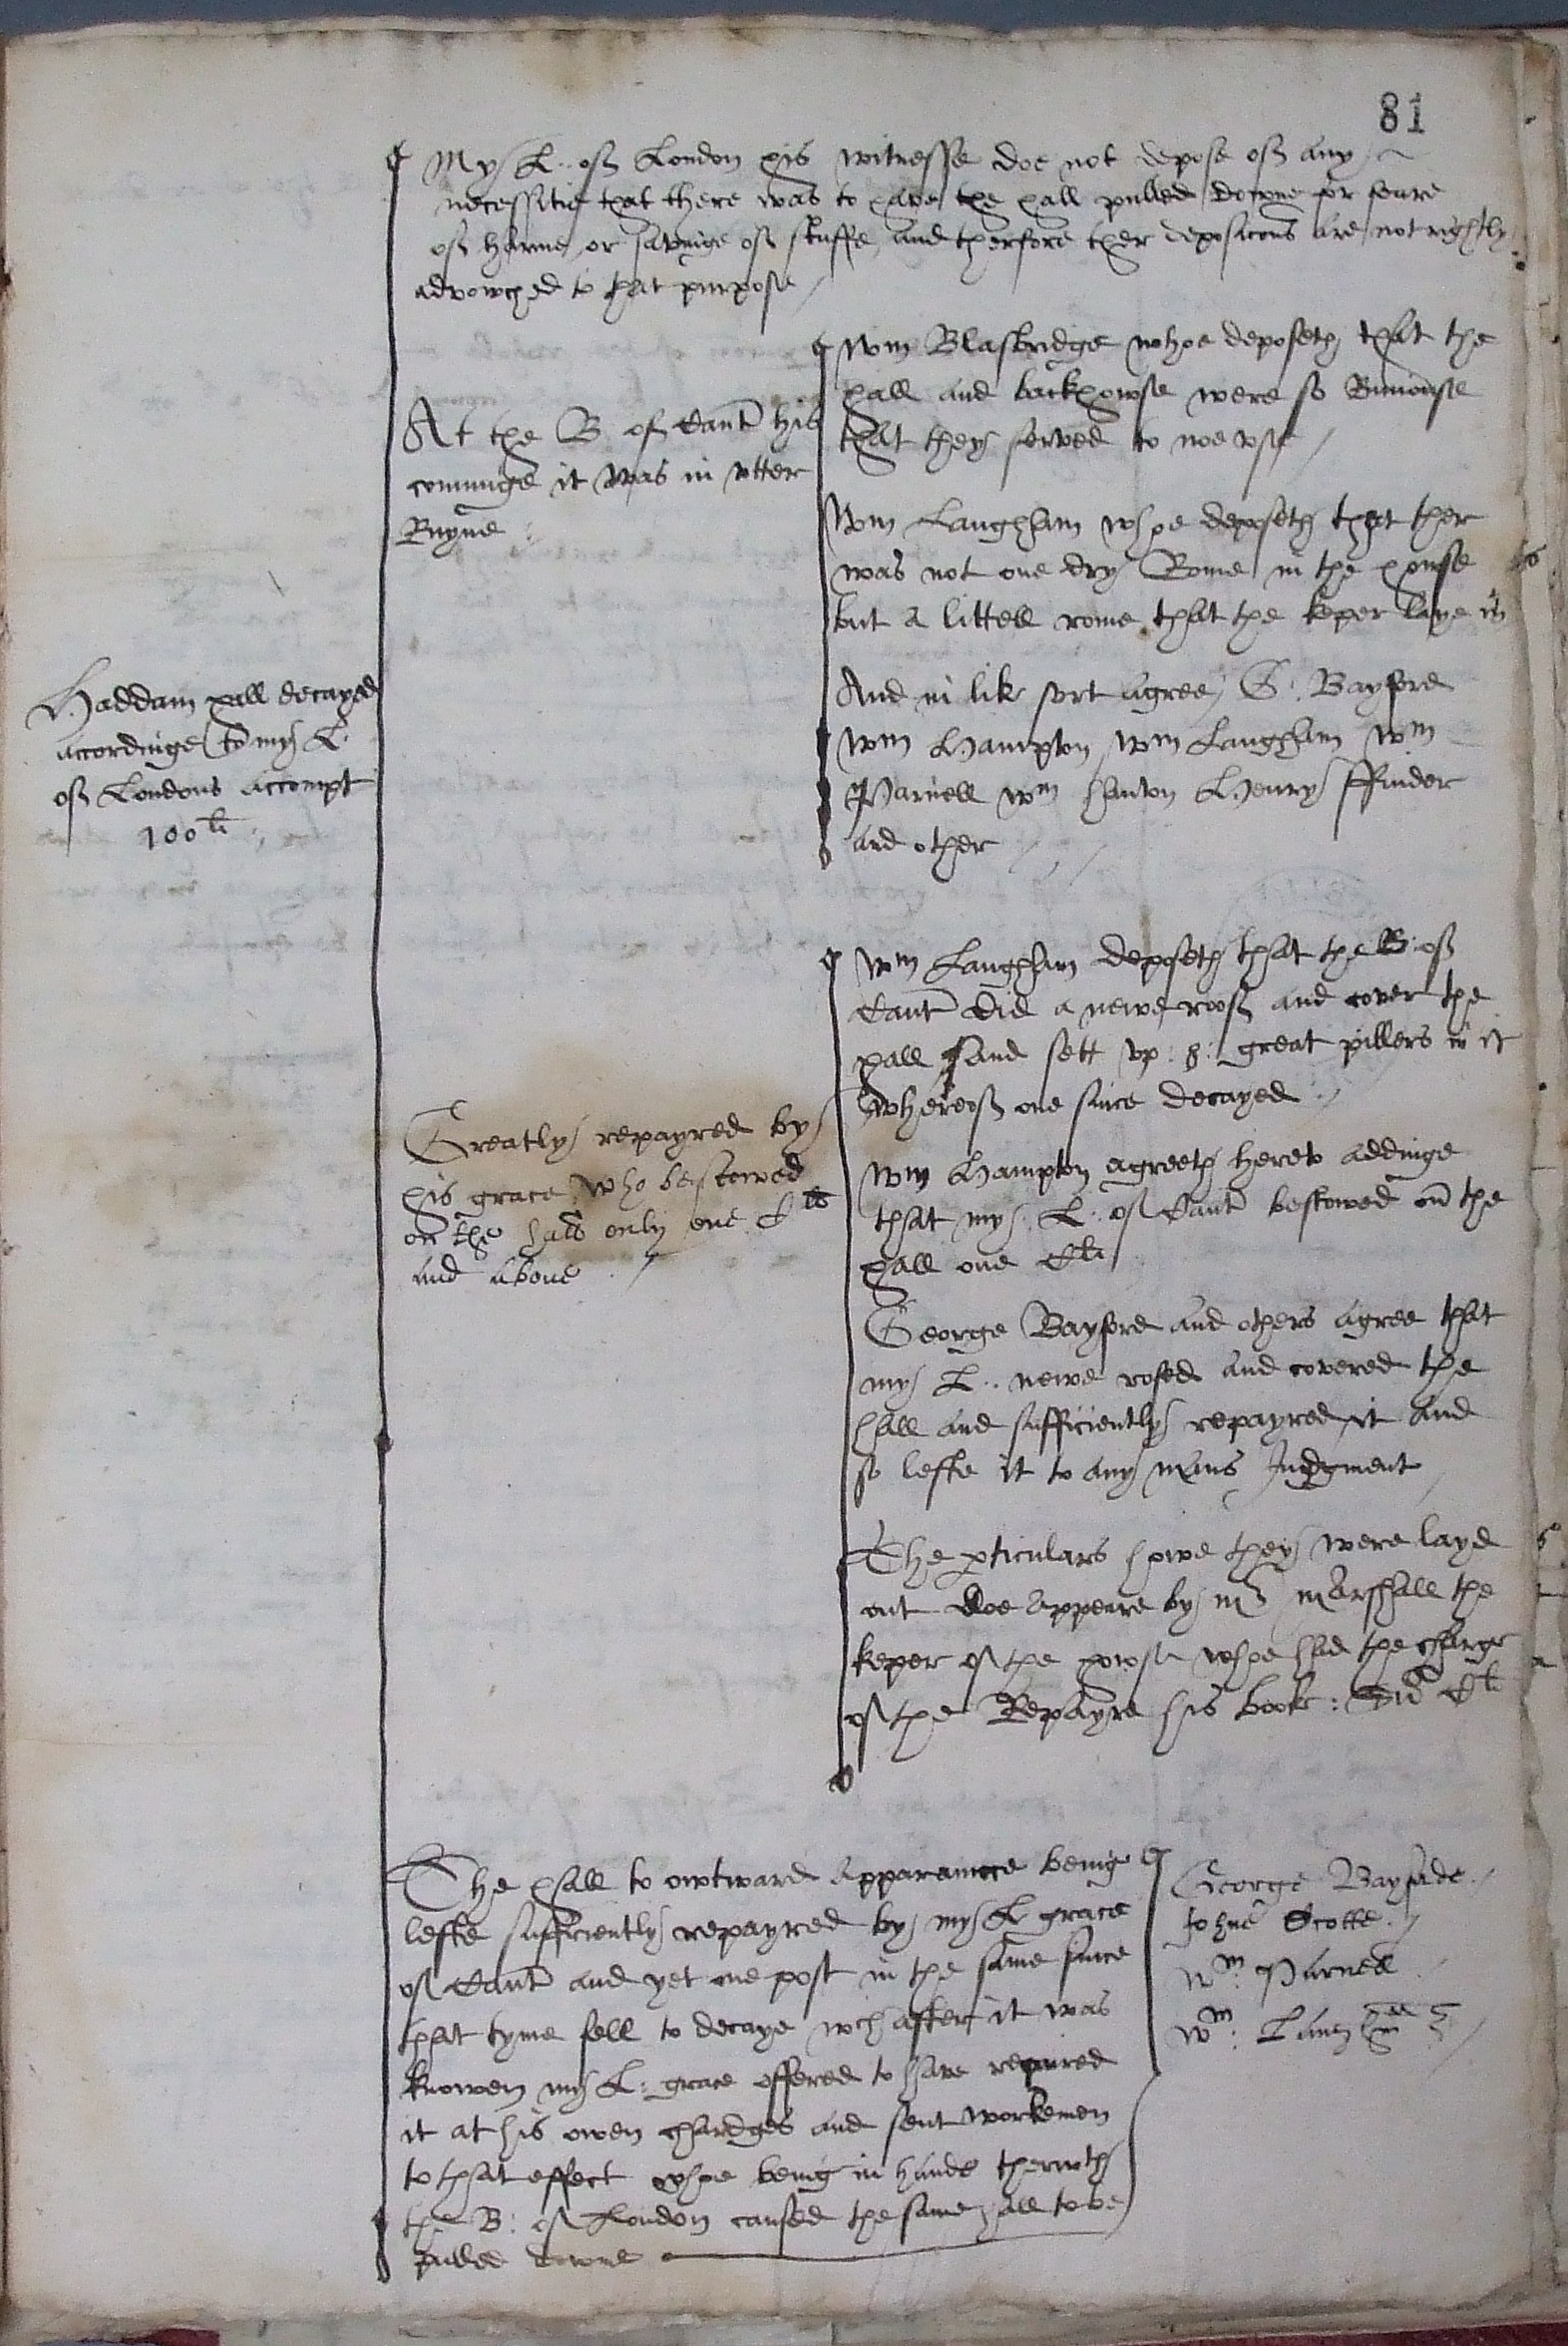 81
My L. of London his witnesse doe not depose of any
necessitie that there was to have the hall pulled downe for feare
of harme or savinge of stuffe, and therfore ther deposicons are not rightly
advowched to that purpose
Haddam hall decayed
accordinge to my L.
of Londons accompt
100li
At the B of Cant his
cominge it was in utter
Ruyne
Wm Blasbridge whoe deposeth that the
hall and backhowse were so Ruinouse
that they served to noe use
Wm Laugham whoe deposeth that ther
was not one dry Rome in the howse
but a littell rome that the keper laye in
And in lik sort agree G: Bayford
Wm Hampton Wm Laugham Wm
Parnell Wm Henry ffinder
and other
Greatly repayred by
his grace who bestowed
on the hall only one Cli
and above
Wm Laugham deposeth that the B: of
Cant did a newe roof and cover the
hall and sett up : 8 : great pillers in it
whereof one since decayed
Wm Hampton agreeth hereto addinge
that my L. of Cant bestowed on the
hall one Cli
George Bayford and others agree that
my L. newe rofed and covered the
hall and sufficiently repayred it and
so lefte it to any mans Judgment
The pticulars howe they were layd
out doe appeare by Mr Marshall the
keper of the howse whoe had the charge
of the Repayre his booke : Cli
The hall to owtward apparance beinge
lefte sufficiently repayred by my L grace
of Cant and yet one post in the same since
that tyme fell to decaye wch after it was
knowen my L: grace offered to have repaired
it at his owen chardges and sent workemen
to that effect whoe being in hande therwth
the B: of London caused the same hall to be
pulled downe
George Bayford
Johne Scotte
Wm: Parnell
Wm: